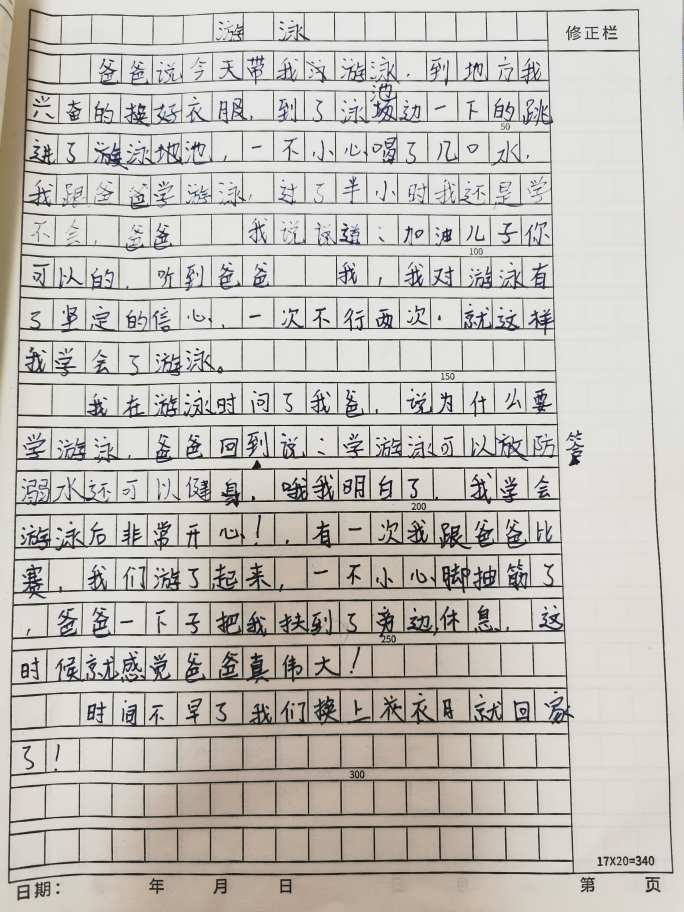 游泳
修正栏
爸爸说今天带我去游泳.到地方我
兴奋的换好衣服,到了泳池边一下的跳
50
进了游泳池,一不小心喝了几口水.
我跟爸爸学游泳,过了半小时我还是学
不会,爸爸 我说说道:加油儿子你
100
可以的.听到爸爸 我,我对游泳有
了坚定的信心,一次不行两次.就这样
我学会了游泳。
150
我在游泳时问了我爸,说为什么要
学游泳,爸爸回到说:学游泳可以放防
答
溺水还可以健身,哦我明白了.我学会
200
游泳后非常开心!,有一次我跟爸爸比
赛,我们游了起来,一不小心脚抽筋了
,爸爸一下子把我扶到了旁边休息.这
250
时候就感觉爸爸真伟大!
时间不早了我们换上衣服就回家
了!
300
17X20=340
日期: 年 月 日 第 页